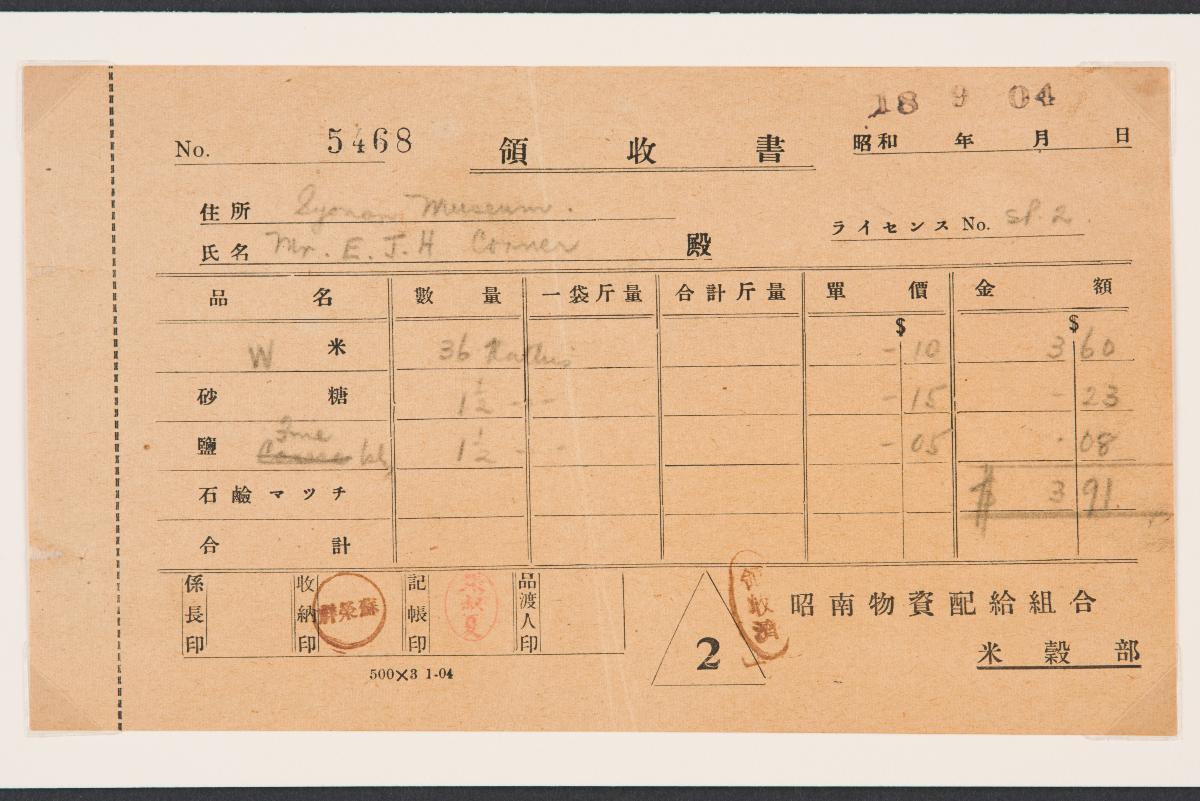 18 9 04
No. 5468 領收書 昭和 年 月 日
住所 Syonan Museum.
氏名 Mr. E. J. H Corner 殿 ライセンス No. SP. 2.
品名 數量 一袋斤量 合計斤量 單價 金額
$ $
W 米 36 Katties - 10 3 60
砂糖 1½ - - - 15 - 23
鹽 Fine Coarse 1½ - - - 05 . 08
石鹼マッチ $ 3 91.
合計
係長印 收納印 記帳印 品渡人印
領收濟
2
昭南物資配給組合
米穀部
500×3 1-04